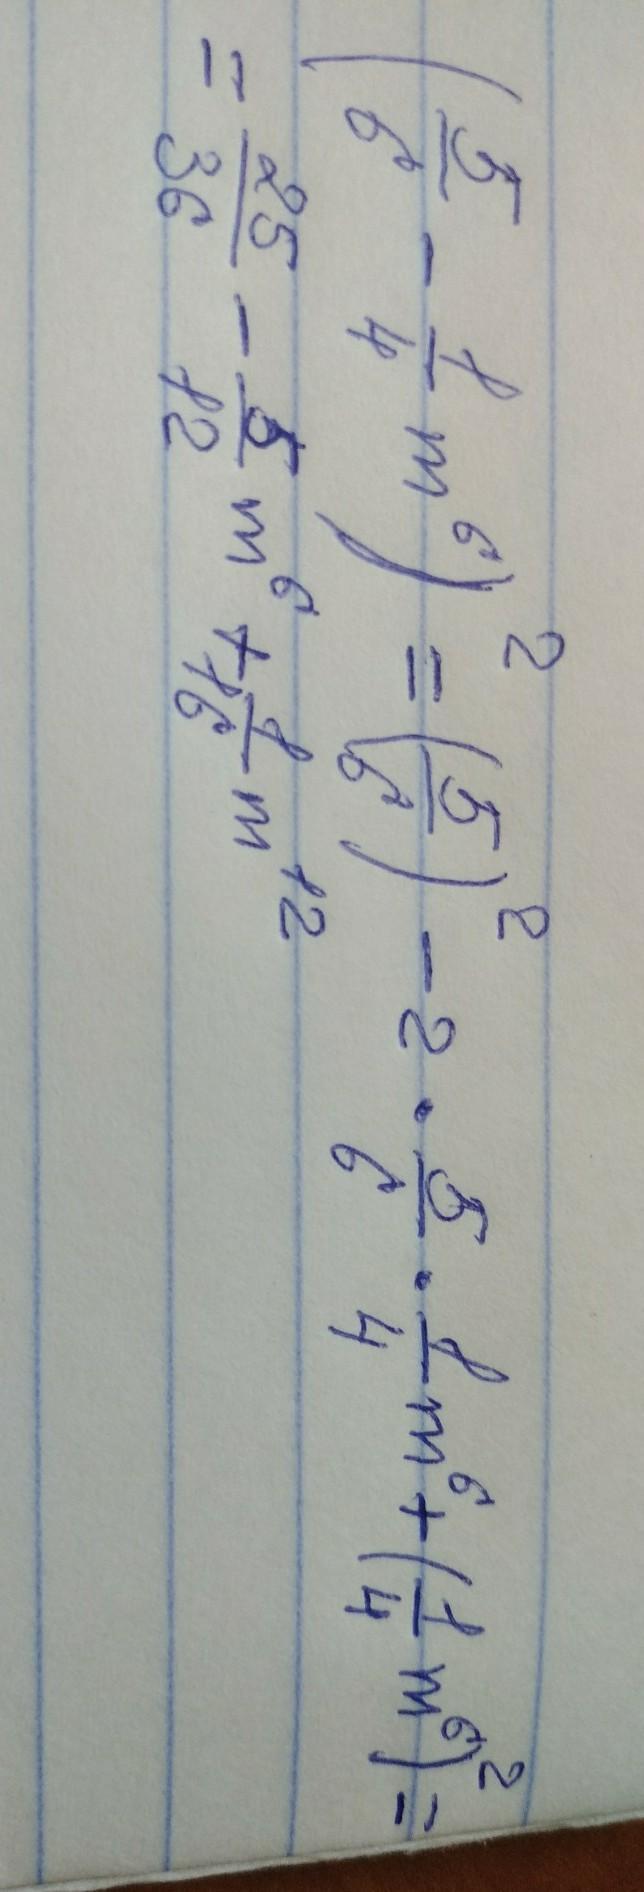 (5/6 - 1/4 m⁶)² = (5/6)² - 2 · 5/6 · 1/4 m⁶ + (1/4 m⁶)² =
= 25/36 - 5/12 m⁶ + 1/16 m¹²